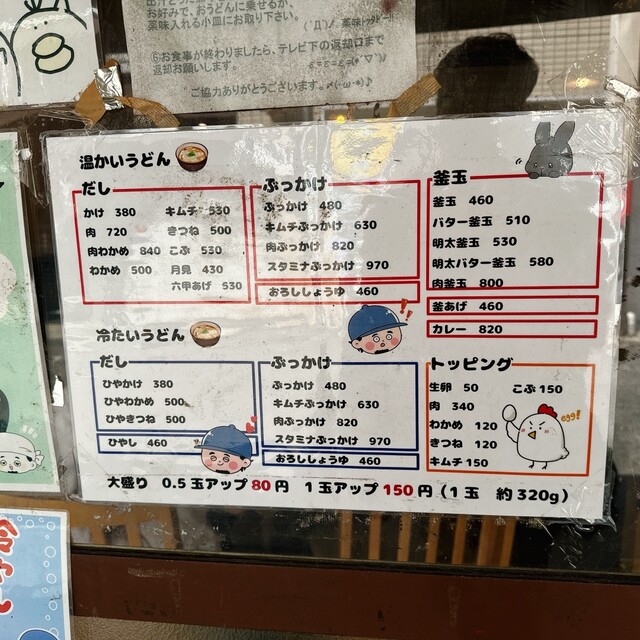 お好みで、おうどんに乗せるか、
薬味入れる小皿にお取り下さい。
⑥お食事が終わりましたら、テレビ下の返却口まで
返却お願いします。
ご協力ありがとうございます。
温かいうどん
だし
かけ 380
肉 720
肉わかめ 840
わかめ 500
キムチ 530
きつね 500
こぶ 530
月見 430
六甲あげ 530
ぶっかけ
ぶっかけ 480
キムチぶっかけ 630
肉ぶっかけ 820
スタミナぶっかけ 970
おろししょうゆ 460
釜玉
釜玉 460
バター釜玉 510
明太釜玉 530
明太バター釜玉 580
肉釜玉 800
釜あげ 460
カレー 820
冷たいうどん
だし
ひやかけ 380
ひやわかめ 500
ひやきつね 500
ひやし 460
ぶっかけ
ぶっかけ 480
キムチぶっかけ 630
肉ぶっかけ 820
スタミナぶっかけ 970
おろししょうゆ 460
トッピング
生卵 50
肉 340
わかめ 120
きつね 120
キムチ 150
こぶ 150
egg!
大盛り 0.5玉アップ80円 1玉アップ150円(1玉 約320g)